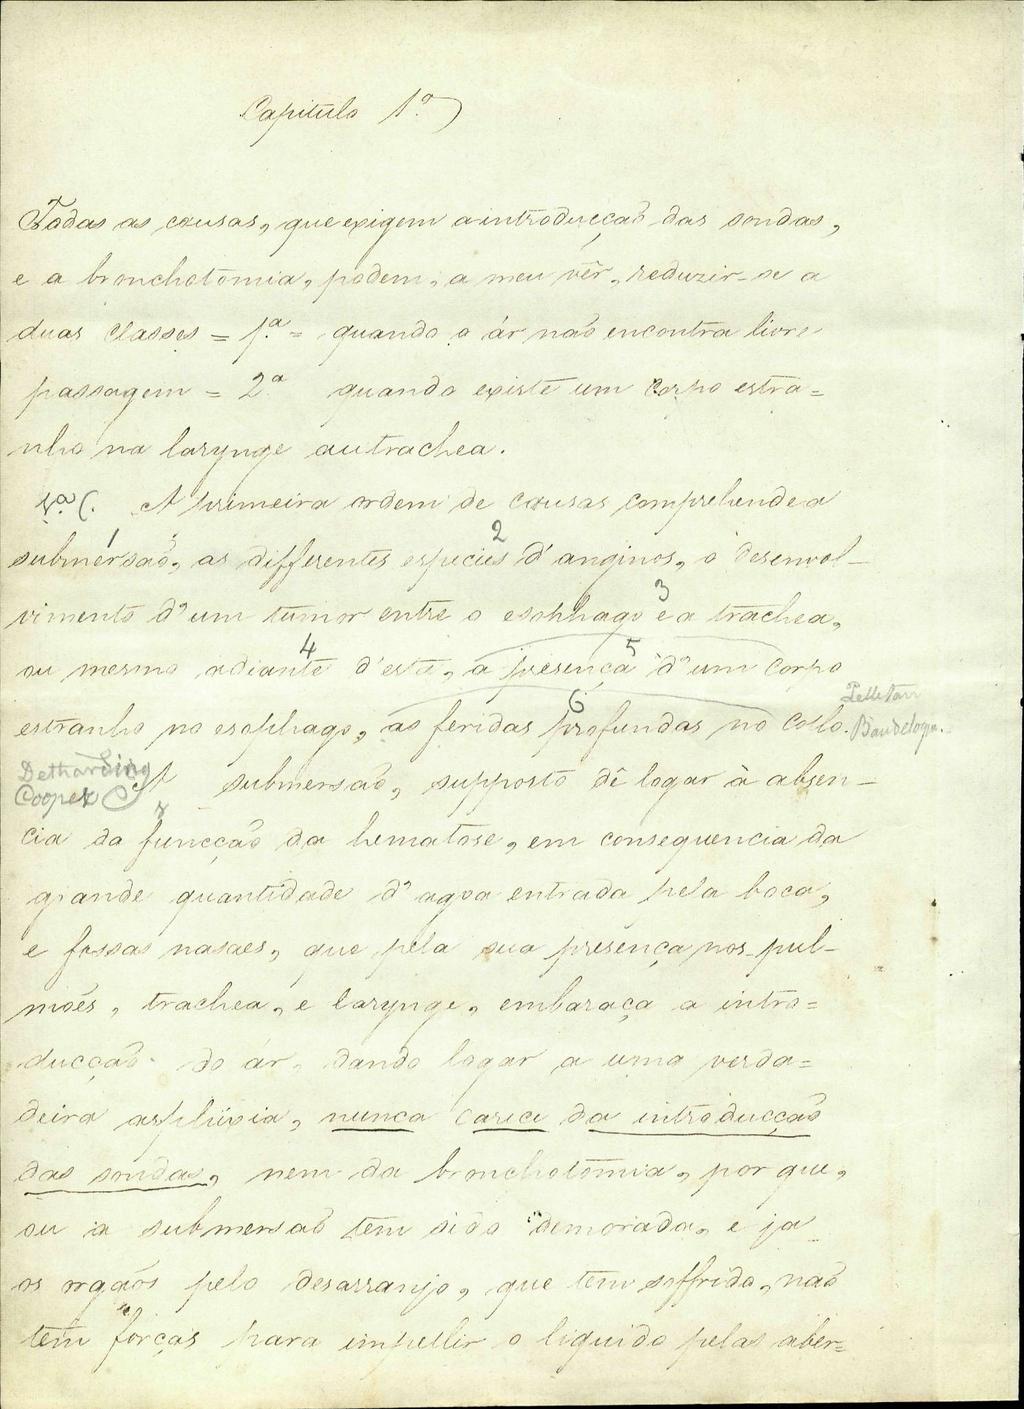 Capitulo 1.º
Todas as causas, que exigem a introducção das sondas,
e a bronchotomia, podem, a meu vêr, reduzir-se a
duas classes = 1.ª = quando o ár não encontra livre
passagem = 2.ª quando existe um corpo estra=
nho na larynge ou trachea.
1.ª C. A primeira ordem de causas comprehende a
1 2
submersão, as differentes especies d'anginos, o desenvol-
3
vimento d'um tumor entre o esophago e a trachea,
4 5
ou mesmo adiante d'esta, a presença d'um corpo
6 Pelletan
estranho no esophago, as feridas profundas no collo. Baudeloque.
Detharding
Cooper
A submersão, supposto dê logar à absen-
cia da funcção da hematose, em consequencia da
grande quantidade d'agoa entrada pela boca,
e fossas nasaes, que pela sua presença nos pul-
mões, trachea, e larynge, embaraça a intro=
ducção do ár, dando logar a uma verda=
deira asphixia, nunca carece da introducção
das sondas, nem da bronchotomia, por que,
ou a submersão tem sido demorada, e ja
os orgãos pelo desarranjo, que tem soffrido, não
tem forças para impellir o liquido pelas aber=